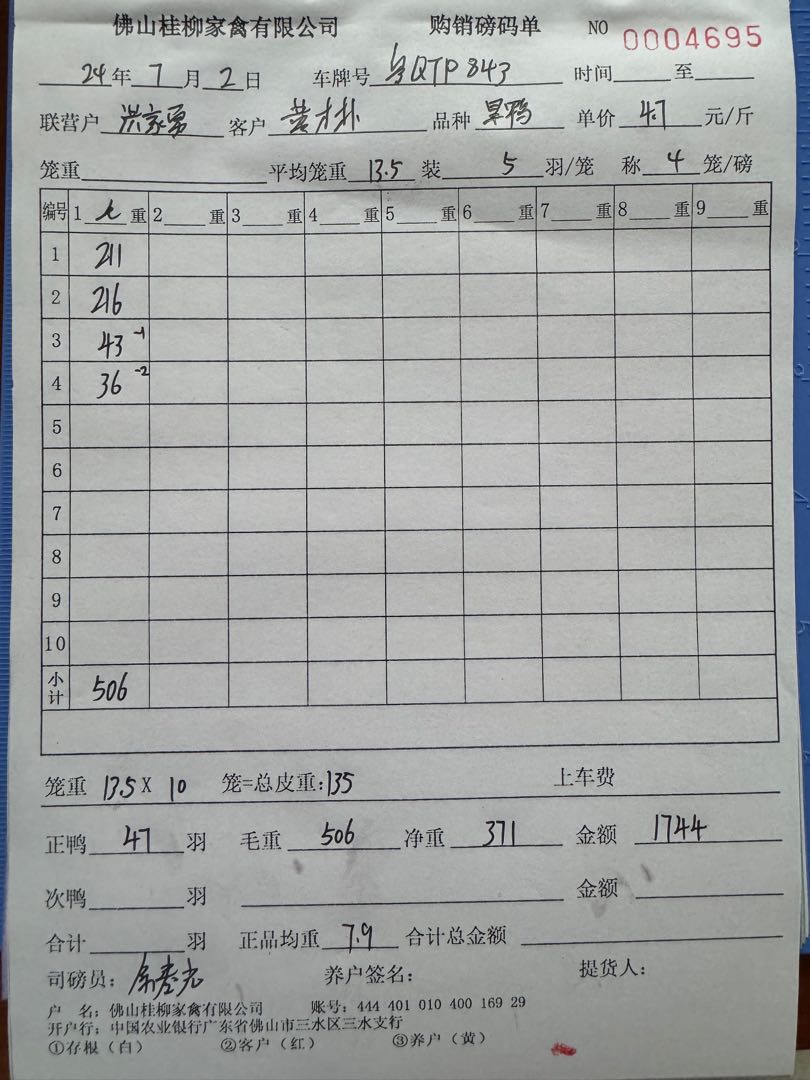 佛山桂柳家禽有限公司 购销磅码单 NO 0004695
24年 7月 2日 车牌号 粤QTP843 时间 至
联营户 洪家勇 客户 黄才朴 品种 旱鸭 单价 4.7 元/斤
笼重 平均笼重 13.5 装 5 羽/笼 称 4 笼/磅
编号 1 毛 重 2 重 3 重 4 重 5 重 6 重 7 重 8 重 9 重
1 211
2 216
3 43 -1
4 36 -2
5
6
7
8
9
10
小计 506
笼重 13.5 X 10 笼=总皮重:135 上车费
正鸭 47 羽 毛重 506 净重 371 金额 1744
次鸭 羽 金额
合计 羽 正品均重 7.9 合计总金额
司磅员: 养户签名: 提货人:
户 名: 佛山桂柳家禽有限公司 账号: 444 401 010 400 169 29
开户行: 中国农业银行广东省佛山市三水区三水支行
①存根(白) ②客户(红) ③养户(黄)